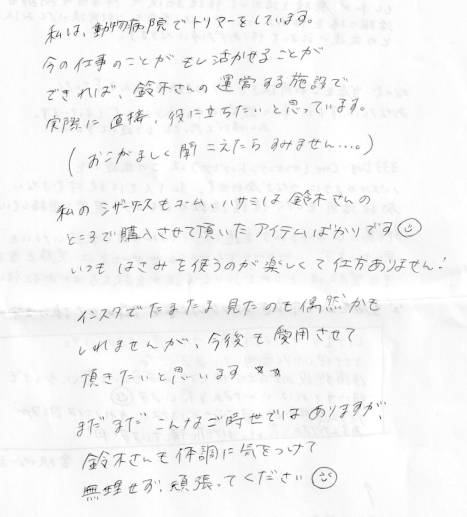 私は、動物病院でトリマーをしています。
今の仕事のことが もし活かせることが
できれば、鈴木さんの運営する施設で
実際に直接、役に立ちたいと思っています。
(おこがましく聞こえたらすみません…。)
私のシザーケースもコーム、ハサミは鈴木さんの
ところで購入させて頂いたアイテムばかりです
いつも はさみを使うのが楽しくて仕方ありません!
インスタでたまたま見たのも偶然かも
しれませんが、今後も愛用させて
頂きたいと思います
まだまだ こんなご時世ではありますが、
鈴木さんも体調に気をつけて
無理せず、頑張ってください